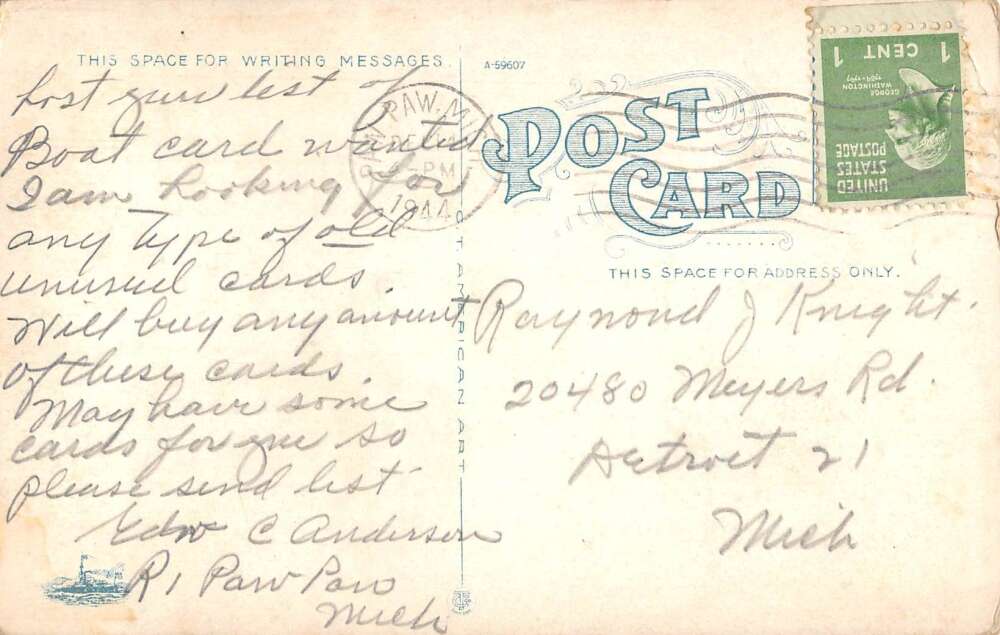 THIS SPACE FOR WRITING MESSAGES
Lost your list of
Boat card wanted
I am Looking for
any Type of old
unusual cards.
Will buy any amount
of these cards.
May have some
cards for you so
please send list
Edw C Anderson
R1 Paw Paw
Mich
A-59607
POST CARD
PAW PAW, MICH
PM
1944
UNITED
STATES
POSTAGE
GEORGE
WASHINGTON
1789-1797
1 CENT 1
THIS SPACE FOR ADDRESS ONLY.
Raymond J Knight.
20480 Meyers Rd.
Detroit 21
Mich